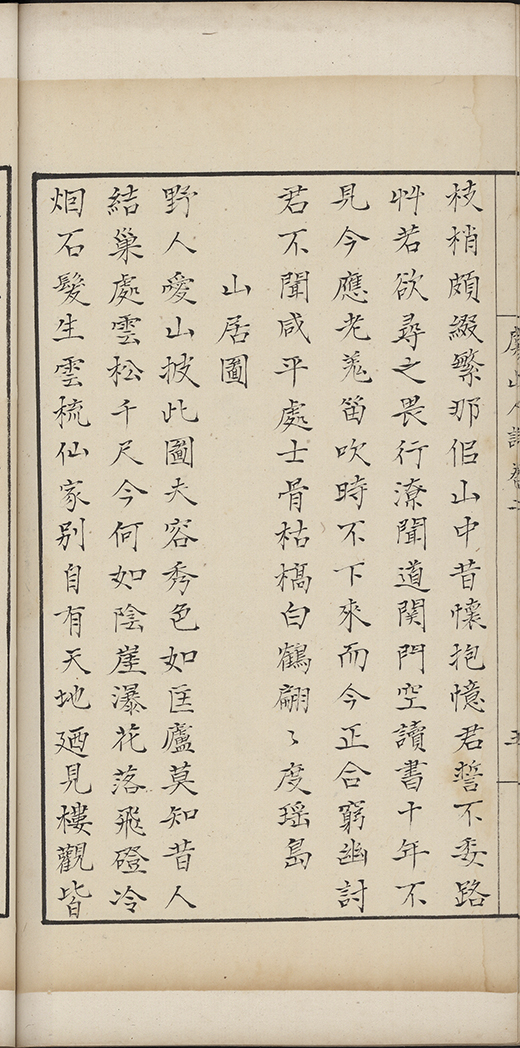 枝梢頗綴繁那侶山中昔懷抱憶君誓不委路
艸若欲尋之畏行潦聞道関門空讀書十年不
見今應老羗笛吹時不下來而今正合窮幽討
君不聞咸平處士骨枯槁白鶴翩〻度瑶島
山居圖
野人愛山披此圖夫容秀色如匡廬莫知昔人
結巢處雲松千尺今何如陰崖瀑花落飛磴冷
烟石髮生雲梳仙家别自有天地廼見樓觀皆